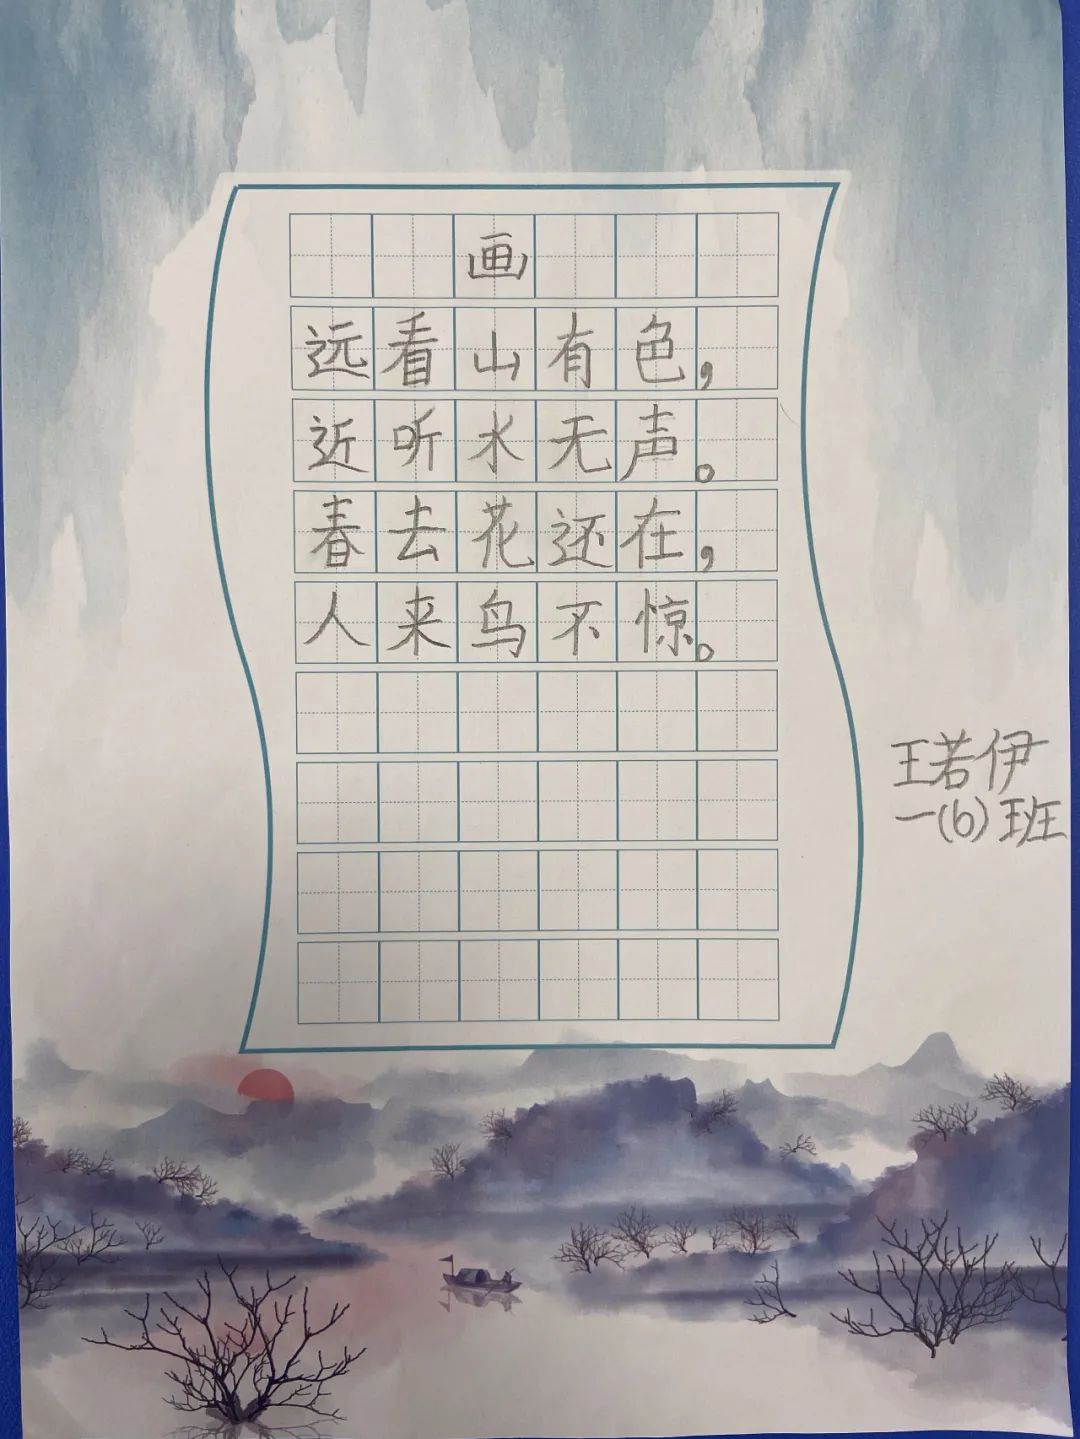 画
远看山有色，
近听水无声。
春去花还在，
人来鸟不惊。
王若伊
一(6)班